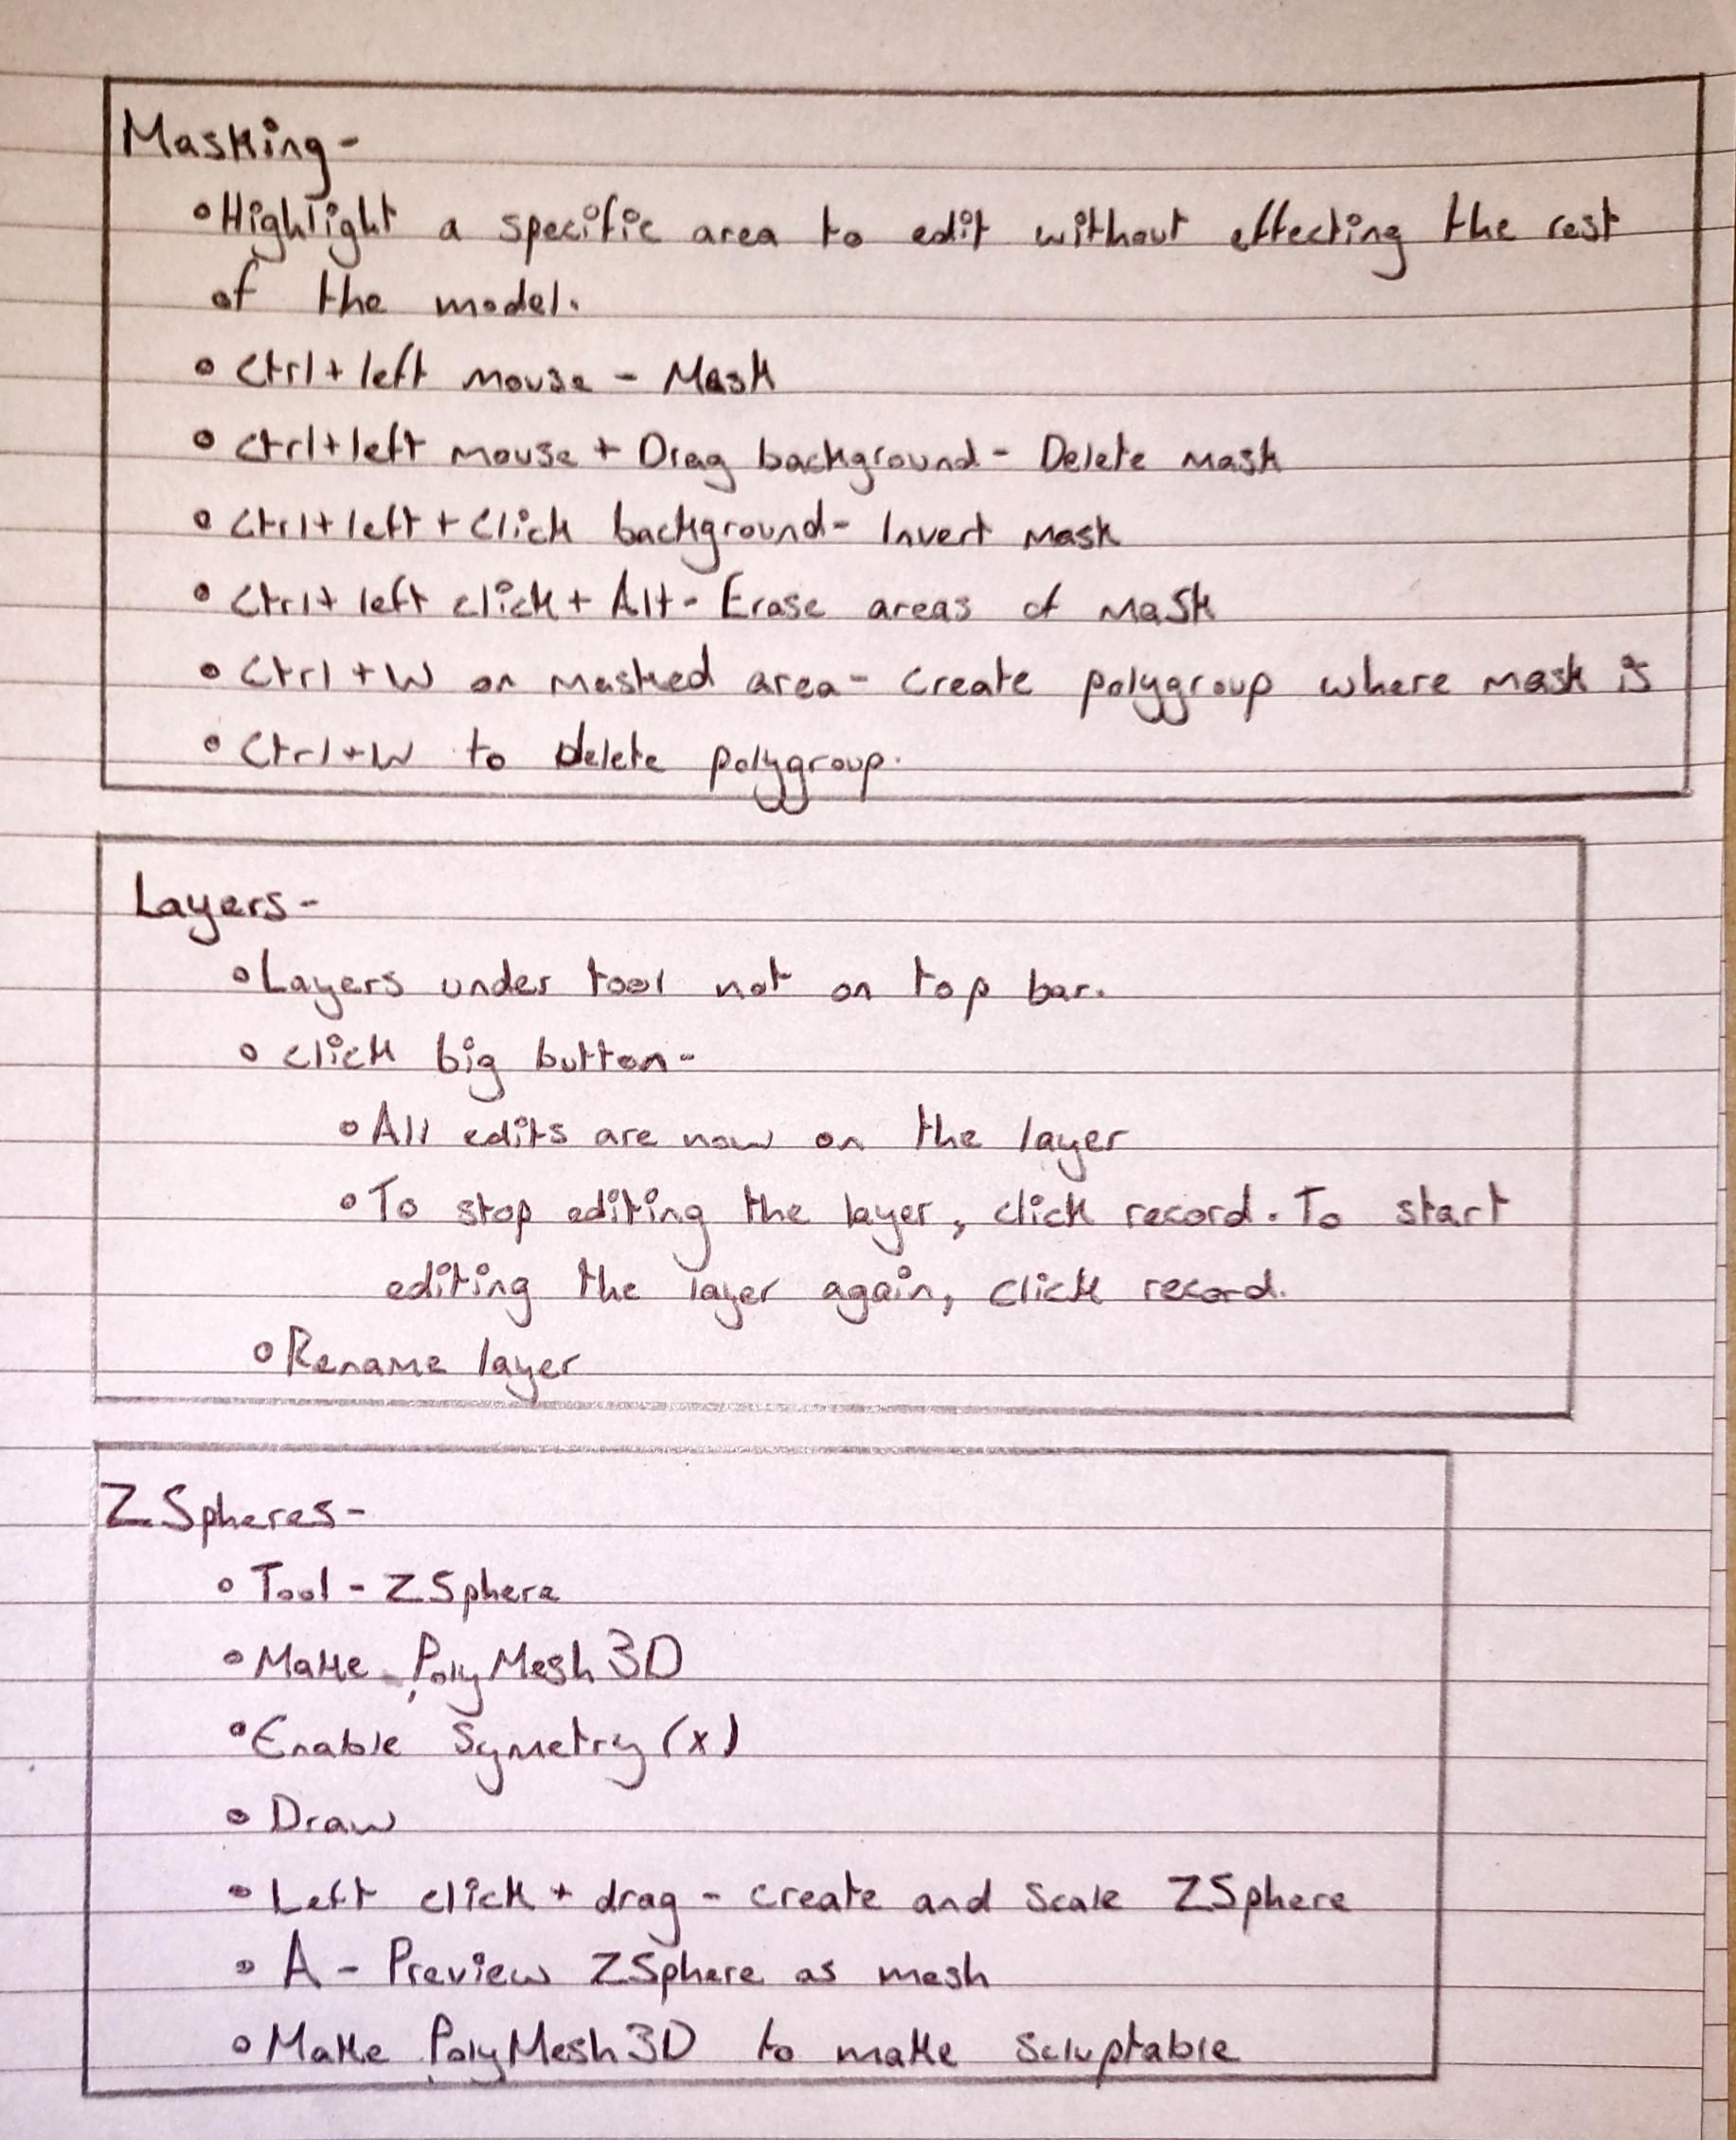 Masking-
• Highlight a specific area to edit without effecting the rest
of the model.
• Ctrl + left mouse - Mask
• Ctrl + left mouse + Drag background - Delete mask
• Ctrl + left + Click background - Invert mask
• Ctrl + left click + Alt - Erase areas of mask
• Ctrl + W on masked area - Create polygroup where mask is
• Ctrl + W to Delete polygroup.
Layers-
• Layers under tool not on top bar.
• Click big button-
• All edits are now on the layer
• To stop editing the layer, click record. To start
editing the layer again, click record.
• Rename layer
ZSpheres-
• Tool - ZSphere
• Make PolyMesh3D
• Enable Symetry (x)
• Draw
• Left click + drag - create and scale ZSphere
• A - Preview ZSphere as mesh
• Make PolyMesh3D to make Scluptable